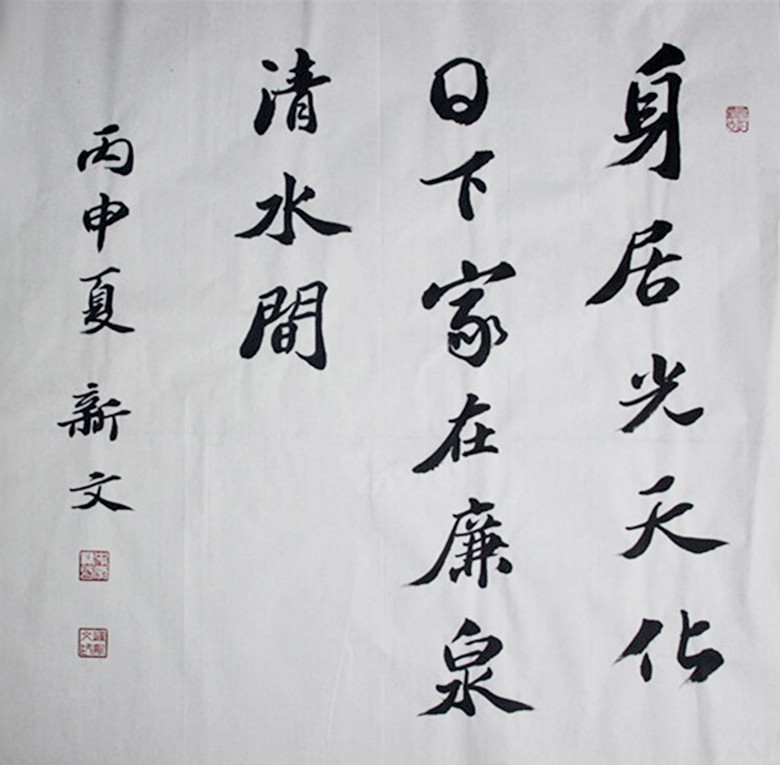 身居光天化
日下家在廉泉
清水間
丙申夏 新文